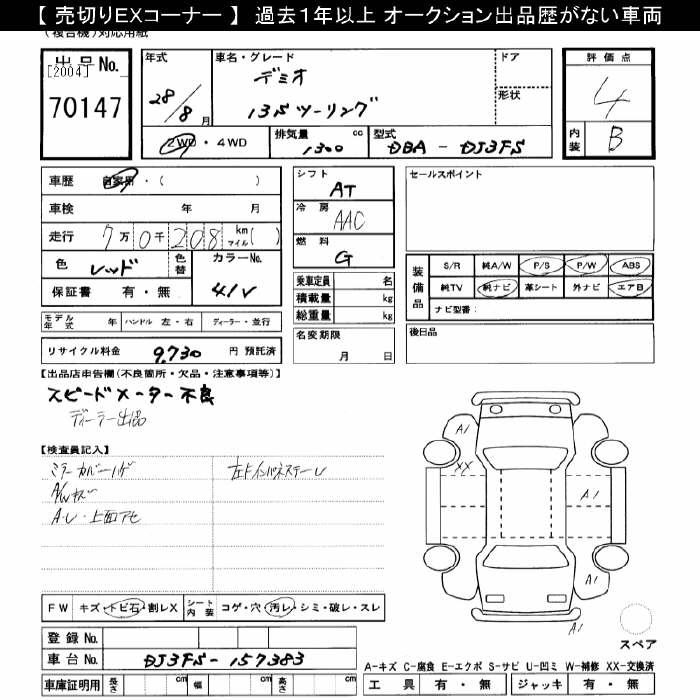 【 売切りEXコーナー 】 過去1年以上 オークション出品歴がない車両
(複合機)対応用紙
出品No. [2004] 70147
年式 28/8月
車名・グレード デミオ 13Sツーリング
ドア
形状
評価点 4
内装 B
2WD・4WD 排気量 1300 cc 型式 DBA - DJ3FS
車歴 自家用・( )
車検 年 月
走行 7万0千208 km マイル( )
色 レッド 色替 カラーNo. 41V
保証書 有・無
シフト AT
冷房 AAC
燃料 G
乗車定員 名
積載量 kg
総重量 kg
名変期限 月 日
セールスポイント
装備品 S/R 純A/W P/S P/W ABS
純TV 純ナビ 革シート 外ナビ エアB
ナビ型番:
後日品
モデル年式 年 ハンドル 左・右 ディーラー・並行
リサイクル料金 9,730 円 預託済
【出品店申告欄(不良箇所・欠品・注意事項等)】
スピードメーター不良
ディーラー出品
【検査員記入】
ミラーカバーハゲ
A/Wキズ
A・U・上面アセ
A1
XX
A1
A1
A1
スペア
FW キズ・トビ石・割レX シート内装 コゲ・穴・汚レ・シミ・破レ・スレ
登録No.
車台No. DJ3FS-157383
車庫証明用 長さ cm 幅 cm 高さ cm
A-キズ C-腐食 E-エクボ S-サビ U-凹ミ W-補修 XX-交換済
工具 有・無 ジャッキ 有・無